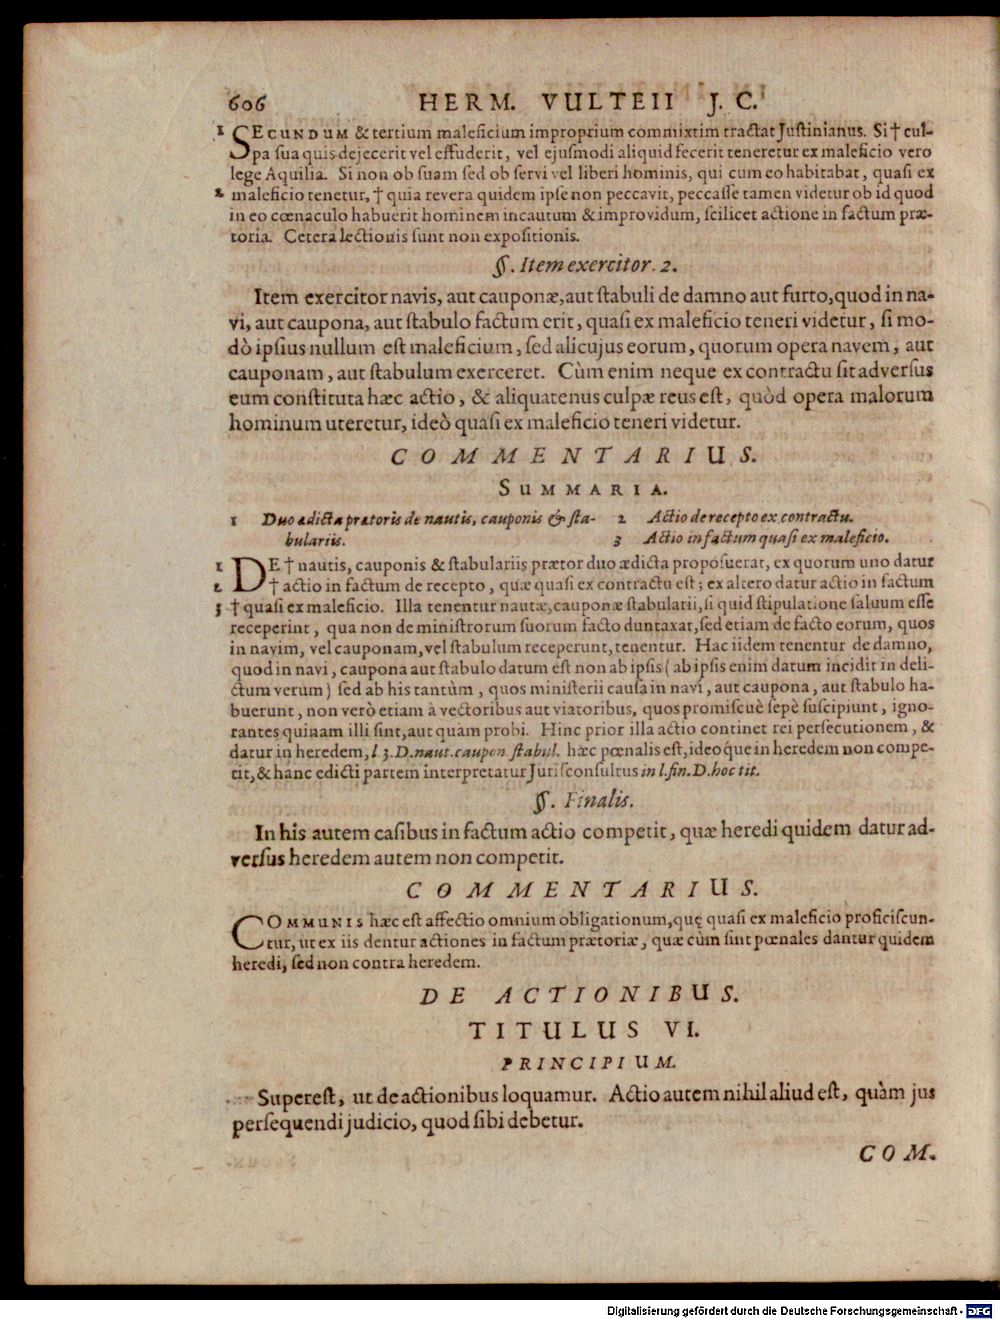 606 HERM. VULTEII J. C.
1 SECUNDUM & tertium maleficium improprium commixtim tractat Justinianus. Si † cul-
pa sua quis dejecerit vel effuderit, vel ejusmodi aliquid fecerit teneretur ex maleficio vero
lege Aquilia. Si non ob suam sed ob servi vel liberi hominis, qui cum eo habitabat, quasi ex
2 maleficio tenetur, † quia revera quidem ipse non peccavit, peccasse tamen videtur ob id quod
in eo cœnaculo habuerit hominem incautum & improvidum, scilicet actione in factum præ-
toria. Cetera lectionis sunt non expositionis.
§. Item exercitor. 2.
Item exercitor navis, aut cauponæ, aut stabuli de damno aut furto, quod in na-
vi, aut caupona, aut stabulo factum erit, quasi ex maleficio teneri videtur, si mo-
dò ipsius nullum est maleficium, sed alicujus eorum, quorum opera navem, aut
cauponam, aut stabulum exerceret. Cùm enim neque ex contractu sit adversus
eum constituta hæc actio, & aliquatenus culpæ reus est, quòd opera malorum
hominum uteretur, ideò quasi ex maleficio teneri videtur.
COMMENTARIUS.
SUMMARIA.
1 Duo ædicta prætoris de nautis, cauponis & sta-
bulariis.
2 Actio de recepto ex contractu.
3 Actio in factum quasi ex maleficio.
1 DE † nautis, cauponis & stabulariis prætor duo ædicta proposuerat, ex quorum uno datur
2 † actio in factum de recepto, quæ quasi ex contractu est; ex altero datur actio in factum
3 † quasi ex maleficio. Illa tenentur nautæ, cauponæ stabularii, si quid stipulatione saluum esse
receperint, qua non de ministrorum suorum facto duntaxat, sed etiam de facto eorum, quos
in navim, vel cauponam, vel stabulum receperunt, tenentur. Hac iidem tenentur de damno,
quod in navi, caupona aut stabulo datum est non ab ipsis (ab ipsis enim datum incidit in deli-
ctum verum) sed ab his tantùm, quos ministerii causa in navi, aut caupona, aut stabulo ha-
buerunt, non verò etiam à vectoribus aut viatoribus, quos promiscuè sepè suscipiunt, igno-
rantes quinam illi sint, aut quàm probi. Hinc prior illa actio continet rei persecutionem, &
datur in heredem, l. 3. D. naut. caupon. stabul. hæc pœnalis est, ideoque in heredem non compe-
tit, & hanc edicti partem interpretatur Jurisconsultus in l. fin. D. hoc tit.
§. Finalis.
In his autem casibus in factum actio competit, quæ heredi quidem datur ad-
versus heredem autem non competit.
COMMENTARIUS.
COMMUNIS hæc est affectio omnium obligationum, quę quasi ex maleficio proficiscun-
tur, ut ex iis dentur actiones in factum prætoriæ, quæ cùm sint pœnales dantur quidem
heredi, sed non contra heredem.
DE ACTIONIBUS.
TITULUS VI.
PRINCIPIUM.
Superest, ut de actionibus loquamur. Actio autem nihil aliud est, quàm jus
persequendi judicio, quod sibi debetur.
COM.
Digitalisierung gefördert durch die Deutsche Forschungsgemeinschaft - DFG